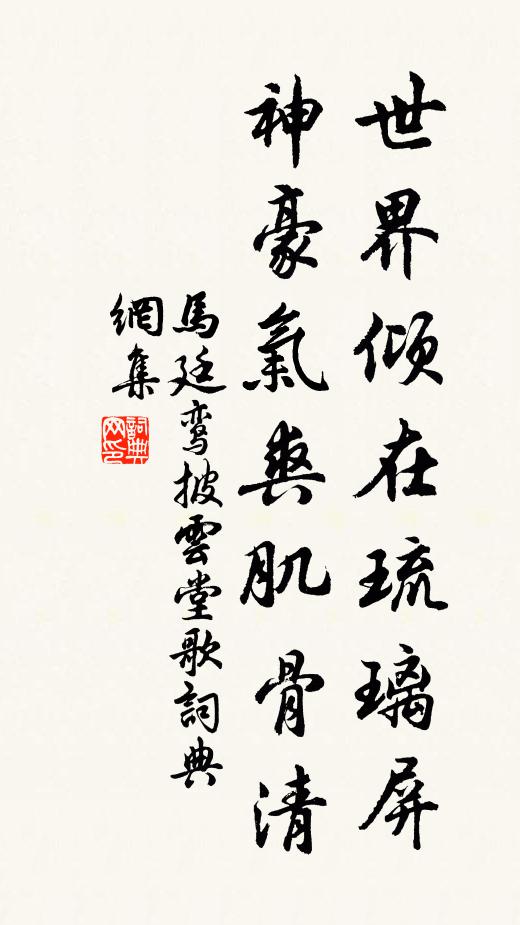 世界傾在琉璃屏
神豪氣爽肌骨清
馬廷鸾披雲堂歌詞典
網集
詞典
网印